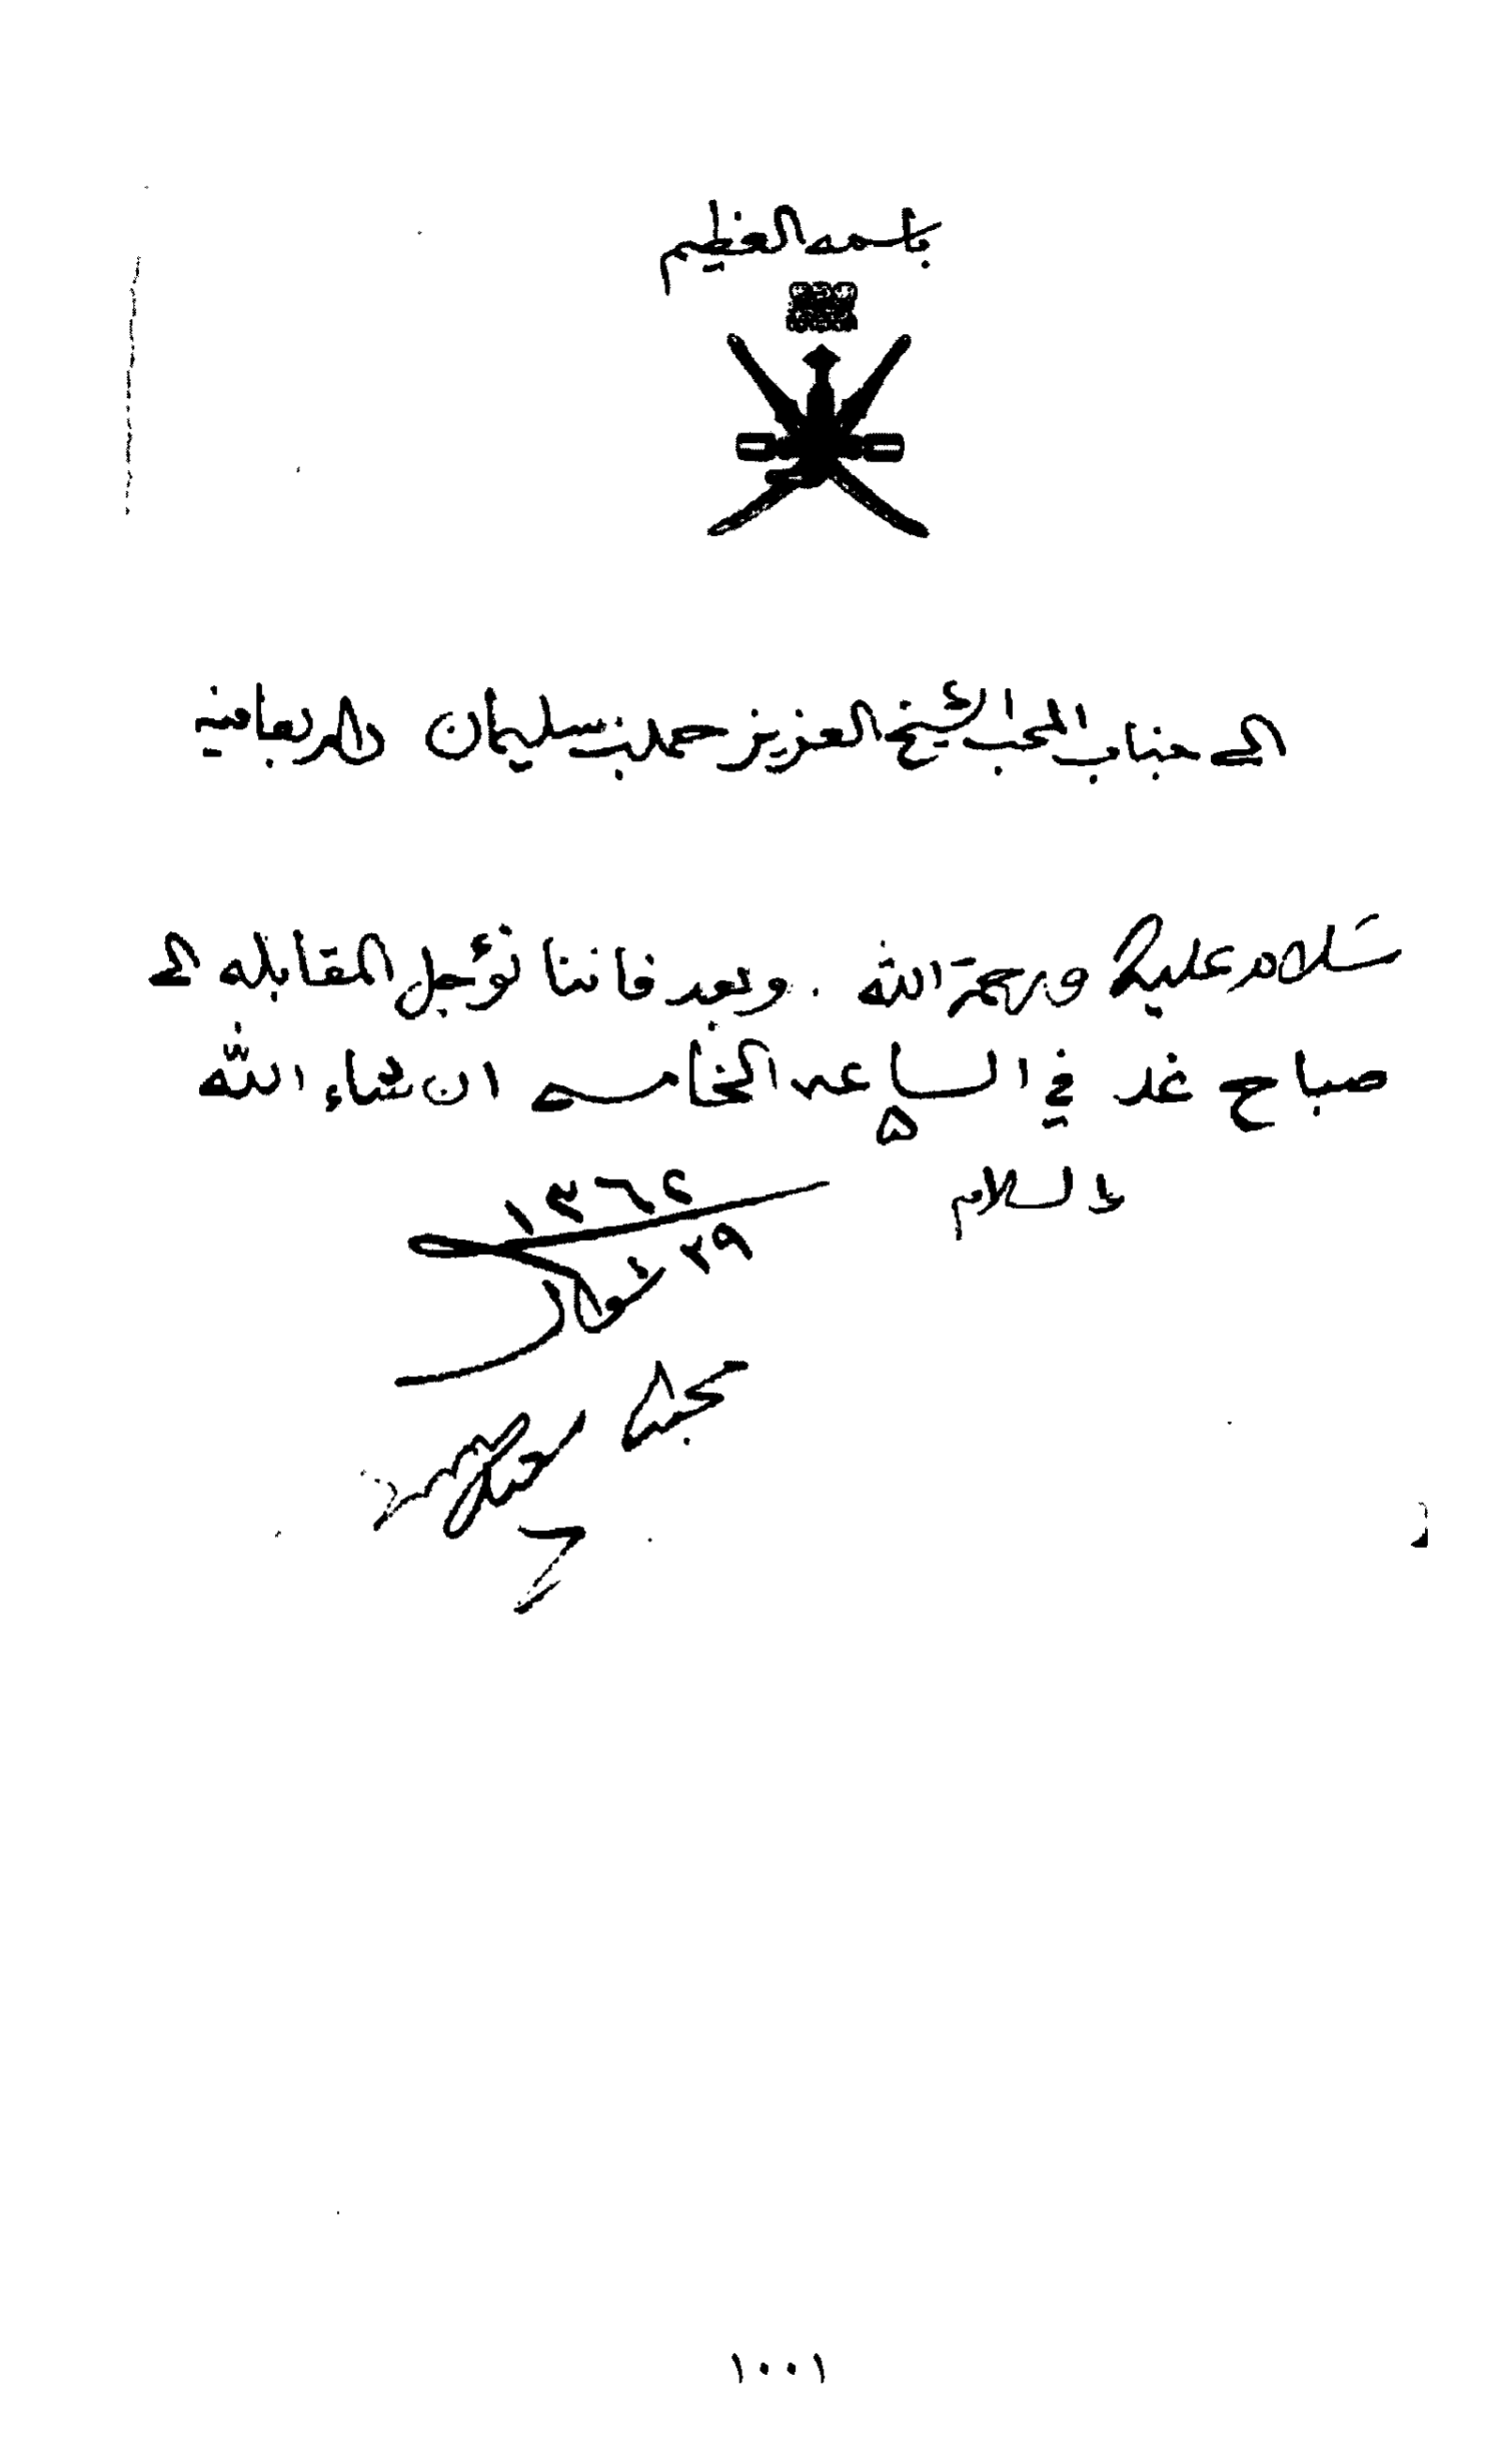 باسمه العظيم
الى جناب المحب الشيخ العزيز حمد بن سليمان دام بعافيه
سلام عليك ورحمة الله . وبعد فاننا نؤجل المقابله الى
صباح غد في الساعه الخامسه ان شاء الله
٥
والسلام
١٣٦٢
٢٩ شوال
محبك
١٠٠١